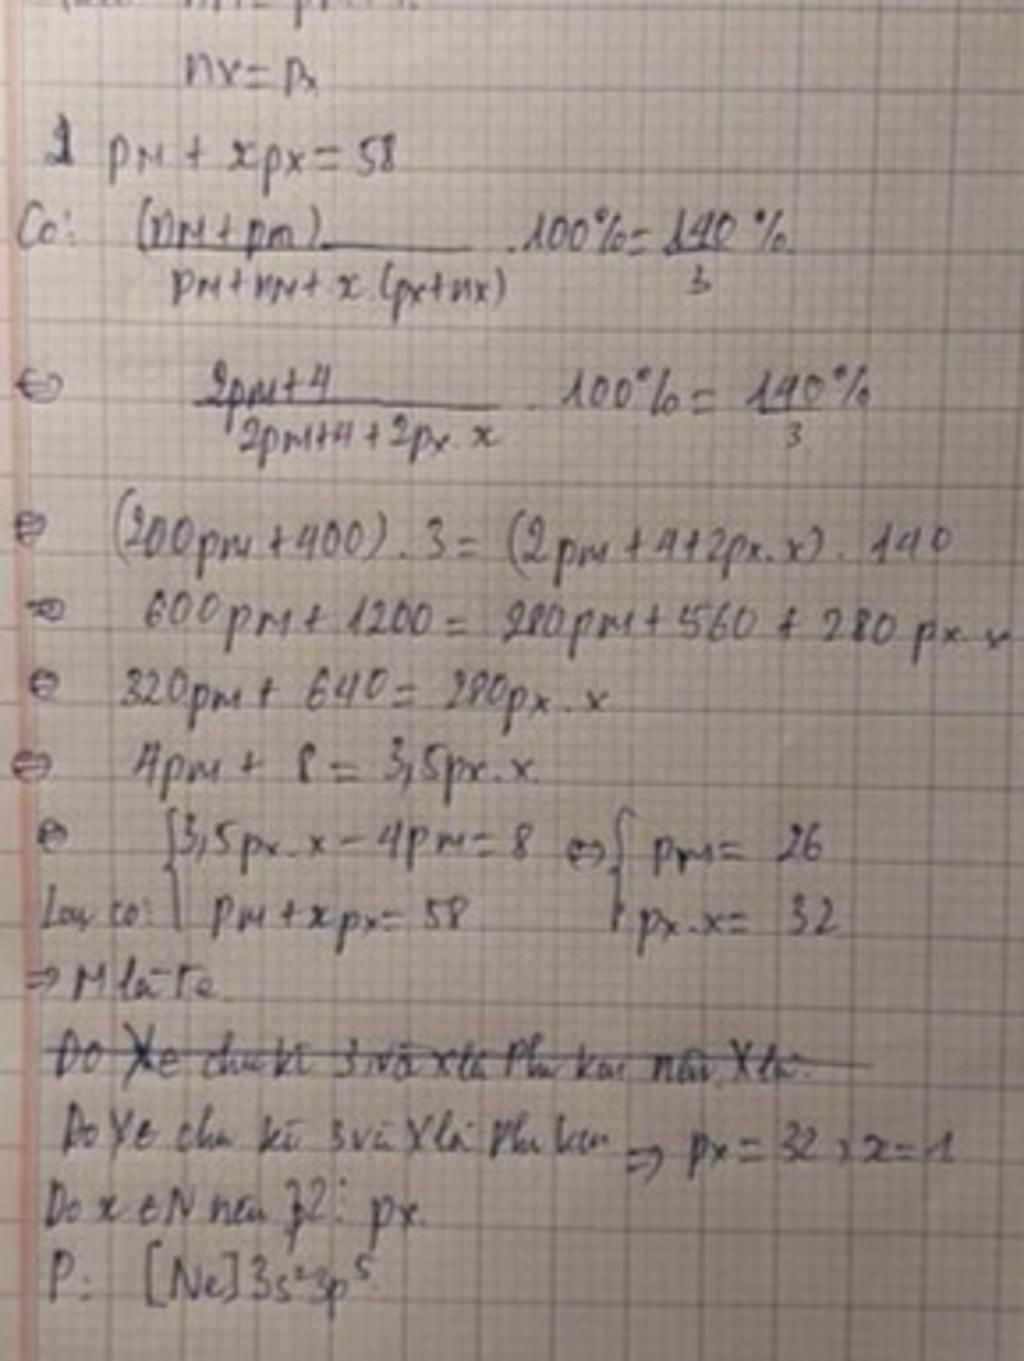 nx = px
1 pM + xpx = 58
Có: (nM + pM) / (pM + nM + x (px + nx)) . 100% = 140/3 %
⇔ (2pM + 4) / (2pM + 4 + 2px. x) . 100% = 140/3 %
⇔ (200pM + 400) . 3 = (2pM + 4 + 2px. x) . 140
⇔ 600pM + 1200 = 280pM + 560 + 280 px. x
⇔ 320pM + 640 = 280px. x
⇔ 4pM + 8 = 3,5px. x
⇔ { 3,5px. x - 4pM = 8 ⇔ { pM = 26
Lại có: pM + xpx = 58 px. x = 32
⇒ M là Fe
Do X ∈ chu kì 3 và X là Phi kim nên X là:
Do X ∈ chu kì 3 và X là Phi kim ⇒ px = 32, x = 1
Do x ∈ N nên 32 ⋮ px.
P: [Ne]3s²3p⁵